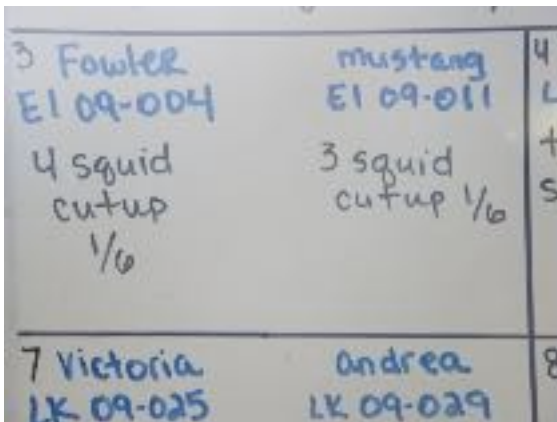 3 Fowler
EI 09-004
4 squid
cutup
1/6
mustang
EI 09-011
3 squid
cutup 1/6
4
L
t
s
7 Victoria
LK 09-025
andrea
LK 09-029
8